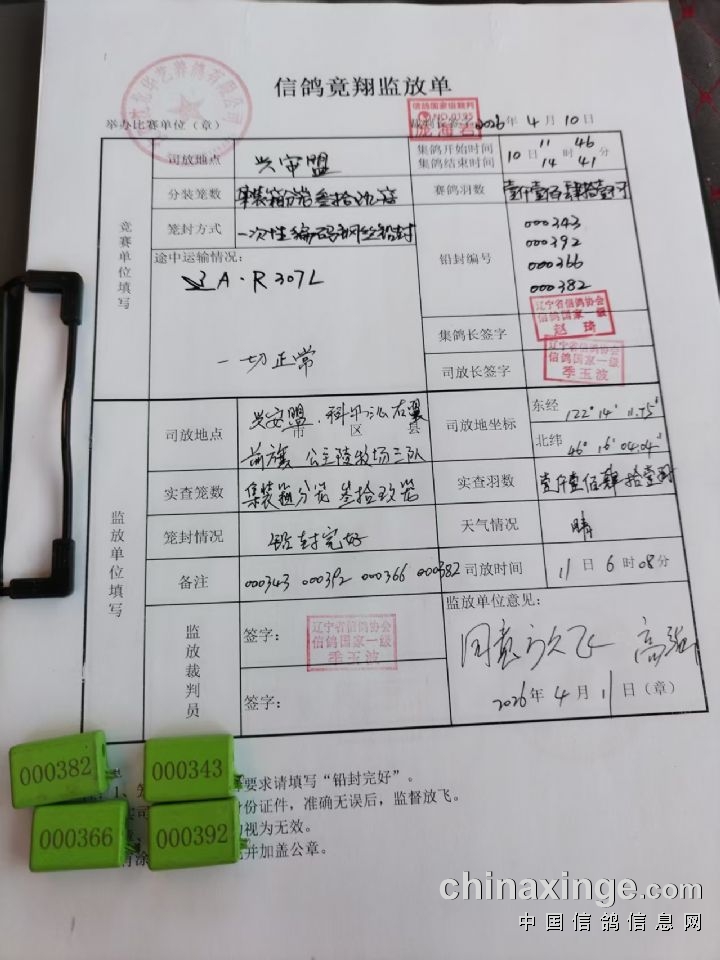 信鸽竞翔监放单
举办比赛单位（章）
2026年 4月 10日
竞赛单位填写
司放地点
集鸽开始时间 10日 11时 46分
集鸽结束时间 14 41
分装笼数
赛鸽羽数
笼封方式 一次性编码钢丝铅封
途中运输情况：
A·R307L
一切正常
铅封编号
000343
000392
000366
000382
集鸽长签字
辽宁省信鸽协会
信鸽国家一级
赵琦
司放长签字
辽宁省信鸽协会
信鸽国家一级
季玉波
监放单位填写
司放地点 兴安盟 市 区 县
前旗 公主陵牧场三队
司放地坐标
东经 122° 14'
北纬 46° 16' 04.04"
实查笼数 集装箱分笼 叁拾玖笼
实查羽数
笼封情况 铅封完好
天气情况 晴
备注 000343 000392 000366 000382
司放时间 11日 6时 08分
监放裁判员
签字：
辽宁省信鸽协会
信鸽国家一级
季玉波
签字：
监放单位意见：
同意放飞
2026年 4月 11日（章）
要求请填写“铅封完好”。
份证件，准确无误后，监督放飞。
视为无效。
并加盖公章。
000382
000343
000366
000392
chinaxinge.com
中国信鸽信息网